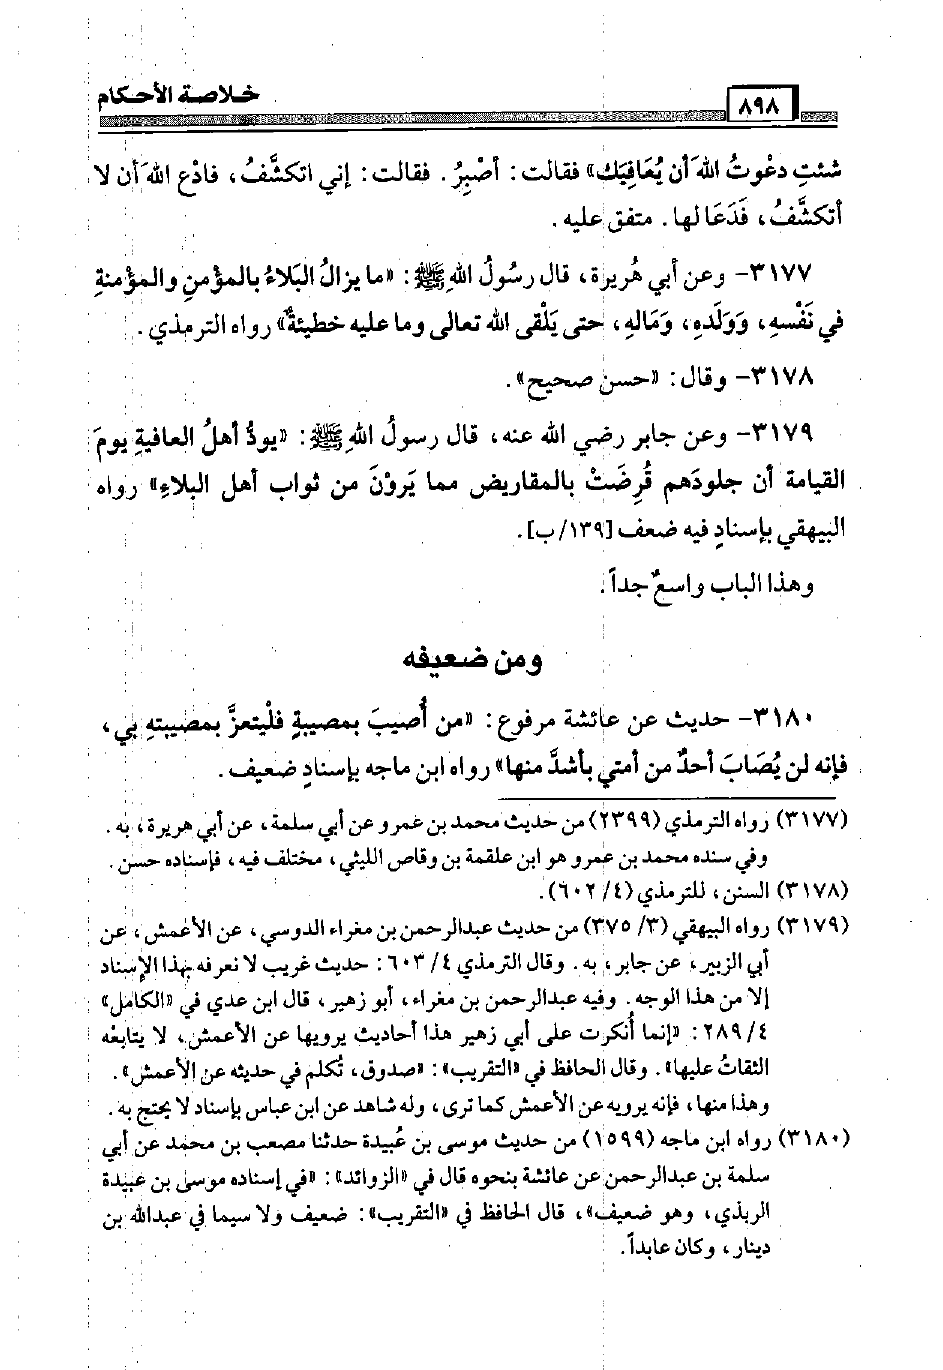 خلاصة الأحكام
٨٩٨
شئتِ دعْوتُ اللهَ أن يُعَافِيَك» فقالت: أصْبِرُ. فقالت: إني اتكشَّفُ، فادْع اللهَ أن لا
أتكشَّفُ، فَدَعَا لها. متفق عليه.
٣١٧٧- وعن أبي هُريرة، قال رسُولُ اللهِ ﷺ: «ما يزالُ البَلاءُ بالمؤمنِ والمؤمنةِ
في نَفْسهِ، وَوَلَدهِ، وَمَالهِ، حتى يَلْقى الله تعالى وما عليه خطيئةٌ» رواه الترمذي.
٣١٧٨- وقال: «حسن صحيح».
٣١٧٩- وعن جابر رضي الله عنه، قال رسولُ اللهِ ﷺ: «يودُّ أهلُ العافيةِ يومَ
القيامة أن جلودَهم قُرِضَتْ بالمقاريض مما يَروْنَ من ثواب أهل البلاءِ» رواه
البيهقي بإسنادٍ فيه ضعف [١٣٩/ب].
وهذا الباب واسعٌ جداً.
ومن ضعيفه
٣١٨٠- حديث عن عائشة مرفوع: «من أُصيبَ بمصيبةٍ فلْيتعزَّ بمصيبتهِ بي،
فإنه لن يُصَابَ أحدٌ من أمتي بأشدَّ منها» رواه ابن ماجه بإسنادٍ ضعيف.
(٣١٧٧) رواه الترمذي (٢٣٩٩) من حديث محمد بن عمرو عن أبي سلمة، عن أبي هريرة، به.
وفي سنده محمد بن عمرو هو ابن علقمة بن وقاص الليثي، مختلف فيه، فإسناده حسن.
(٣١٧٨) السنن، للترمذي (٤/ ٦٠٢).
(٣١٧٩) رواه البيهقي (٣/ ٣٧٥) من حديث عبدالرحمن بن مغراء الدوسي، عن الأعمش، عن
أبي الزبير، عن جابر، به. وقال الترمذي ٤/ ٦٠٣: حديث غريب لا نعرفه بهذا الإسناد
إلا من هذا الوجه. وفيه عبدالرحمن بن مغراء، أبو زهير، قال ابن عدي في «الكامل»
٤/ ٢٨٩: «إنما أُنكرت على أبي زهير هذا أحاديث يرويها عن الأعمش، لا يتابعْه
الثقاتُ عليها». وقال الحافظ في «التقريب»: «صدوق، تُكلم في حديثه عن الأعمش».
وهذا منها، فإنه يرويه عن الأعمش كما ترى، وله شاهد عن ابن عباس بإسناد لا يحتج به.
(٣١٨٠) رواه ابن ماجه (١٥٩٩) من حديث موسى بن عُبيدة حدثنا مصعب بن محمد عن أبي
سلمة بن عبدالرحمن عن عائشة بنحوه قال في «الزوائد»: «في إسناده موسى بن عبيدة
الربذي، وهو ضعيف»، قال الحافظ في «التقريب»: ضعيف ولا سيما في عبدالله بن
دينار، وكان عابداً.